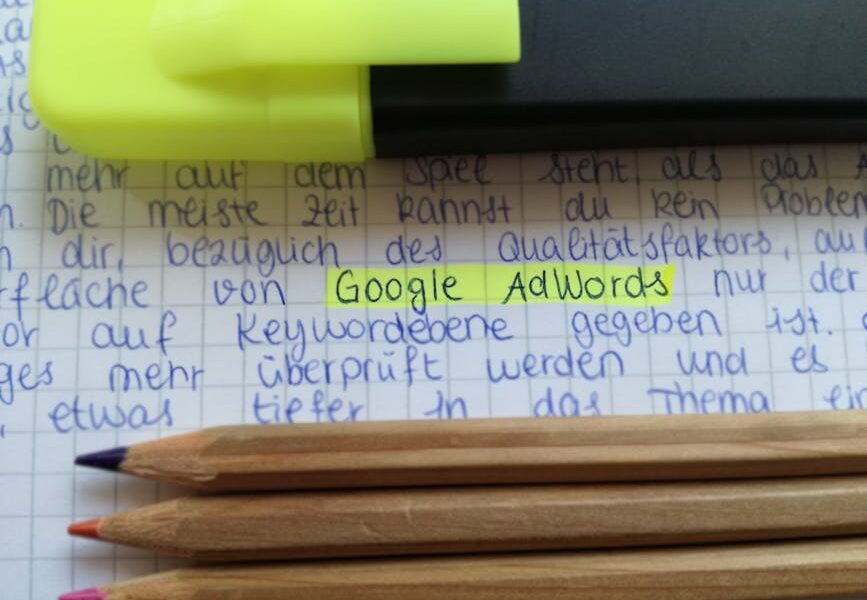 mehr auf dem Spiel steht, als das
n. Die meiste Zeit kannst du kein Problem
h dir, bezüglich des Qualitätsfaktors, au
rfläche von Google AdWords nur der
or auf Keywordebene gegeben ist.
ges mehr überprüft werden und es
, etwas tiefer in das Thema ein